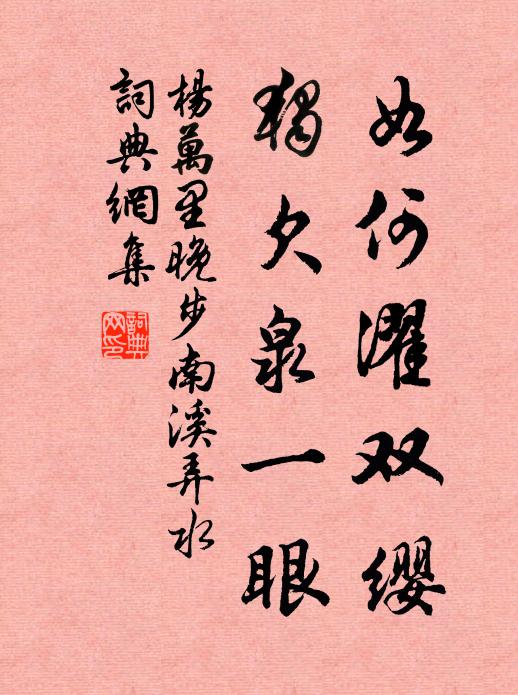 如何濯双缨
獨欠泉一眼
楊萬里晚步南溪弄水
詞典網集
詞典網印